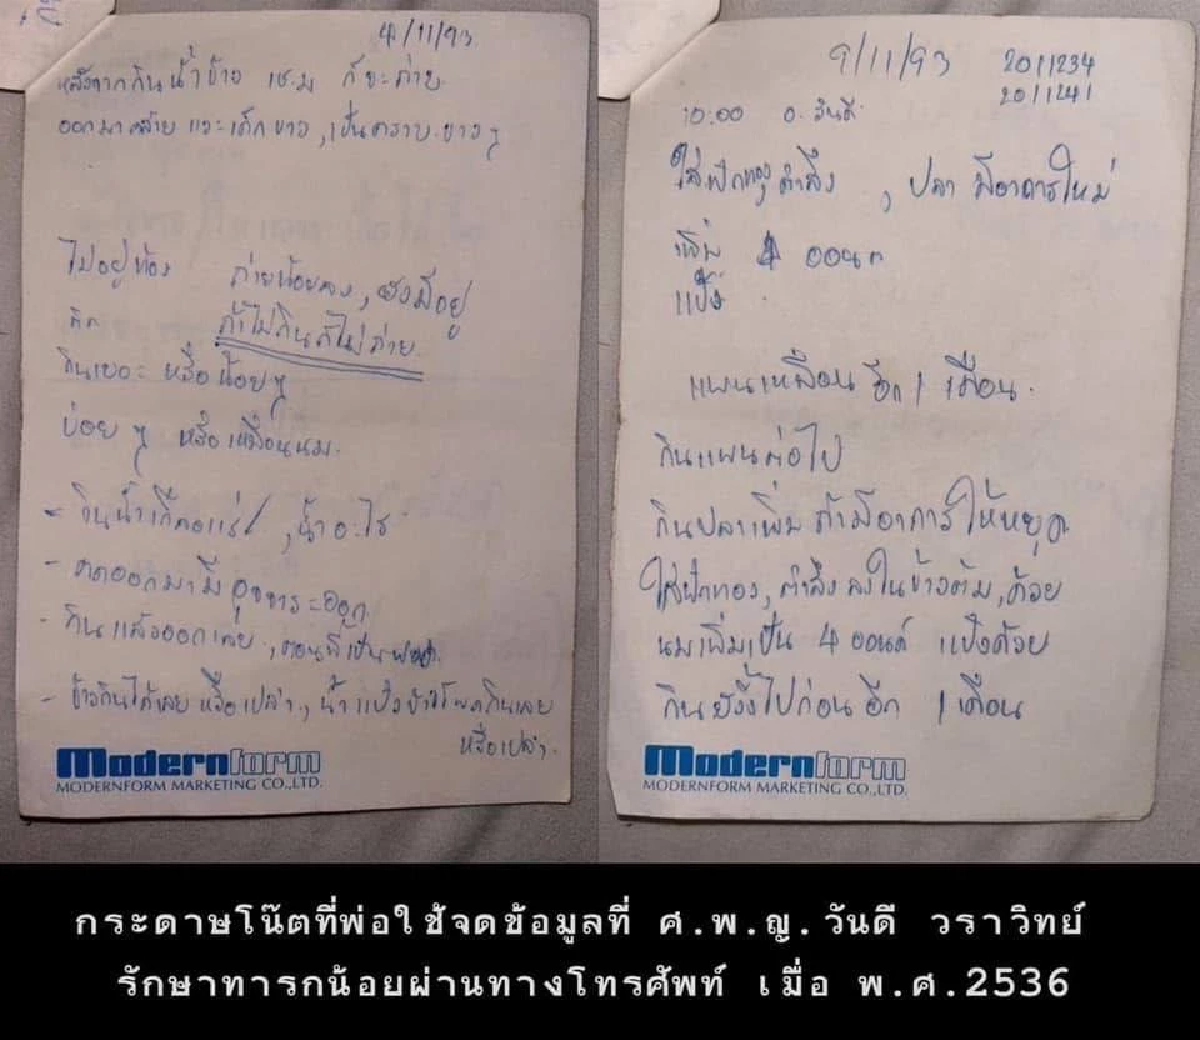 4/11/93
หลังจากกินน้ำข้าว 1 ช.ม ก็จะถ่าย
ออกมาคล้าย แวะเด็กขาว, เป็นคราบขาวๆ
ไม่อยู่ท้อง ถ่ายน้อยลง, ยังมีอยู่
ถ้าไม่กินก็ไม่ถ่าย
กินเยอะ หรือ น้อยๆ
บ่อย ๆ หรือ เหมือนนม.
- กินน้ำเกลือแร่, น้ำอะไร
- ตดออกมามีอุจจาระออก
- กินแล้วออกเลย, ตอนนี้เป็น
- ข้าวกินได้เลย หรือเปล่า, น้ำแป้งข้าวโพดกินเลย
หรือเปล่า.
Modernform
MODERNFORM MARKETING CO.,LTD.
9/11/93 2011234
2011241
10:00 อ. วันดี
ใส่ฟักทอง ตำลึง, ปลา มีอาการใหม่
เพิ่ม 4 ออนซ
แป้ง
แพนเหมือน อีก 1 เดือน.
กินแพนต่อไป
กินปลาเพิ่ม ถ้ามีอาการ ให้หยุด
ใส่ฟักทอง, ตำลึง ลงในข้าวต้ม, ด้วย
นมเพิ่มเป็น 4 ออนซ์ แป้งด้วย
กินยังงี้ไปก่อน อีก 1 เดือน
Modernform
MODERNFORM MARKETING CO.,LTD.
กระดาษโน๊ตที่พ่อใช้จดข้อมูลที่ ศ.พ.ญ.วันดี วราวิทย์
รักษาทารกน้อยผ่านทางโทรศัพท์ เมื่อ พ.ศ.2536